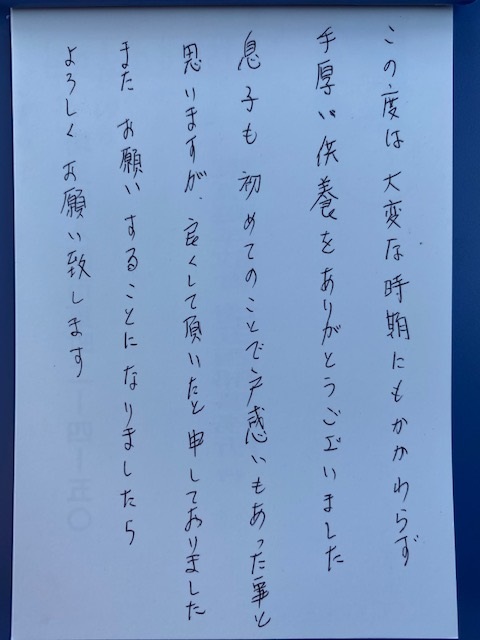 この度は大変な時期にもかかわらず
手厚い供養をありがとうございました
息子も初めてのことで戸惑いもあった事と
思いますが、良くして頂いたと申しておりました
また お願いすることになりましたら
よろしくお願い致します